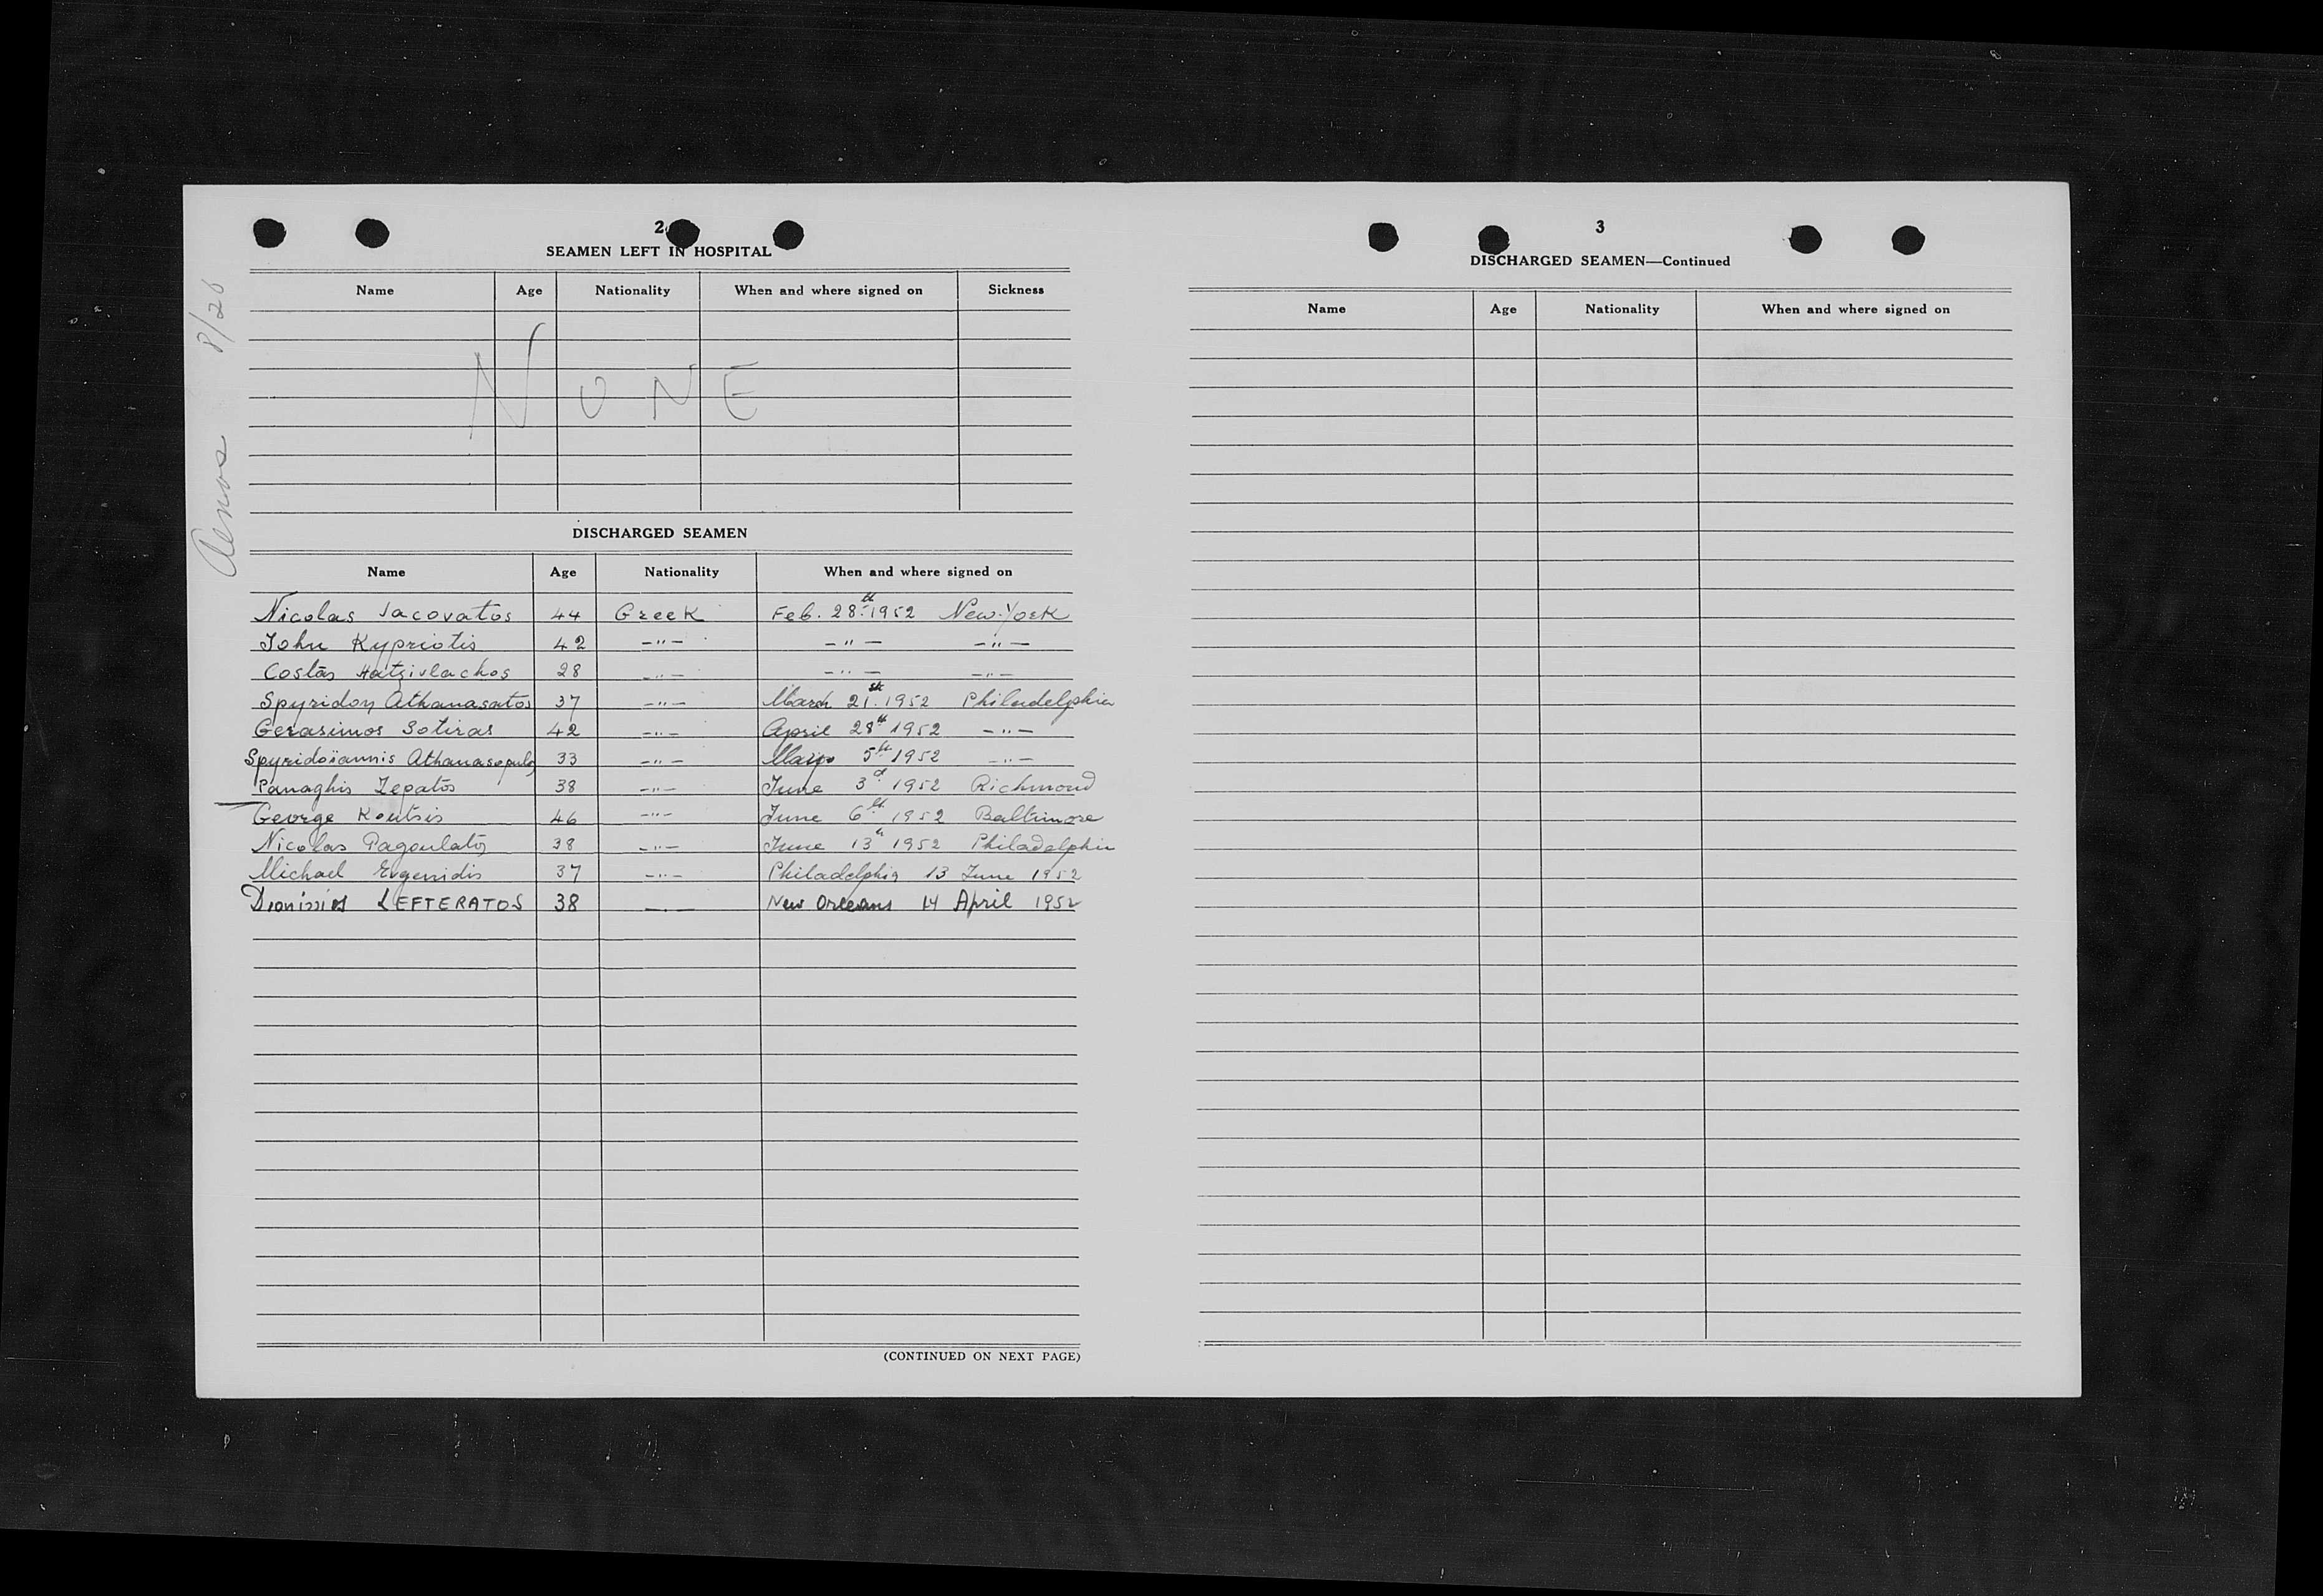 Aenos 8/26
2
SEAMEN LEFT IN HOSPITAL
Name Age Nationality When and where signed on Sickness
NONE
DISCHARGED SEAMEN
Name Age Nationality When and where signed on
Nicolas Jacovatos 44 Greek Feb. 28th 1952 New-York
John Kypriotis 42 –"– –"– –"–
Costas Hatzivlachos 28 –"– –"– –"–
Spyridon Athanasatos 37 –"– March 21st 1952 Philadelphia
Gerasimos Sotiras 42 –"– April 28th 1952 –"–
Spyridoïannis Athanasopulos 33 –"– May 5th 1952 –"–
Panaghis Zepatos 38 –"– June 3d 1952 Richmond
George Koutsis 46 –"– June 6th 1952 Baltimore
Nicolas Pagoulatos 38 –"– June 13th 1952 Philadelphia
Michael Evgenidis 37 –"– Philadelphia 13 June 1952
Dionissios LEFTERATOS 38 –"– New Orleans 14 April 1952
(CONTINUED ON NEXT PAGE)
3
DISCHARGED SEAMEN—Continued
Name Age Nationality When and where signed on